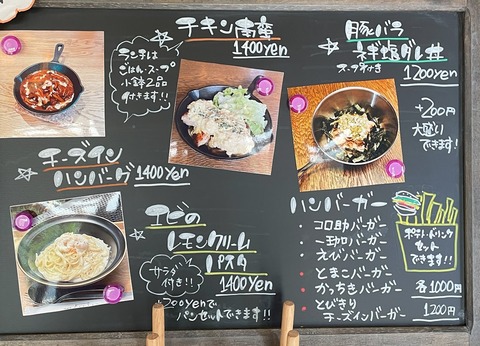 チキン南蛮
1400yen
ランチは
ごはん・スープ
小鉢2品
付きます!!
豚バラ
ネギ塩ダレ丼
スープ付き 1200yen
+200円
大盛り
できます!
チーズイン
ハンバーグ 1400yen
エビの
レモンクリーム
パスタ
1400yen
サラダ
付き!!
200yenで
パンセットできます!!
ハンバーガー
・コロ助バーガー
・えびバーガー
・とまこバーガー
・かっちきバーガー 各1000円
・とびきり
チーズインバーガー 1200円
ポテト・ドリンク
セット
できます!!